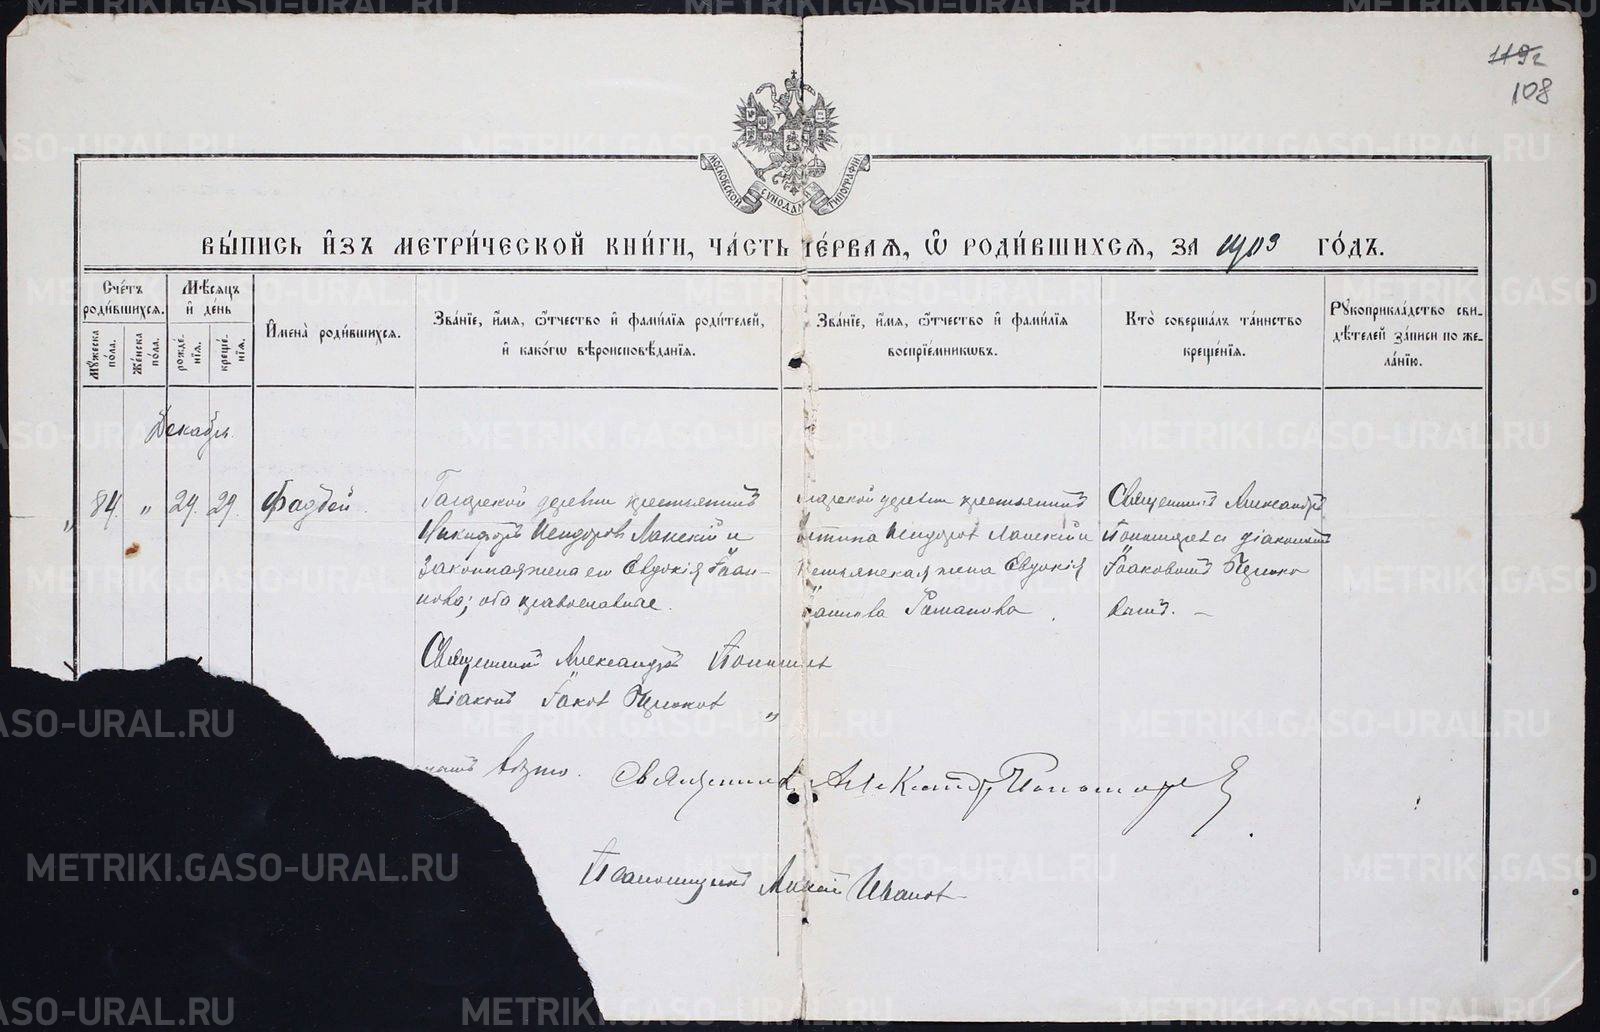 119г
108
МОСКОВСКОЙ СѴНОДАЛ ТИПОГРАФІИ
ВЫ́ПИСЬ И҆ЗЪ МЕТРИ́ЧЕСКОЙ КНИ́ГИ, ЧА́СТЬ ПЕ́РВАЯ, Ѽ РОДИ́ВШИХСЯ, ЗА 1903 ГО́ДЪ.
Сче́тъ роди́вшихся.
Мꙋ́жеска по́ла.
Же́нска по́ла.
Мѣ́сяцъ и҆ де́нь
рожде́нїя.
креще́нїя.
И҆мена̀ роди́вшихся.
Зва́нїе, и҆́мя, ѻ҆́тчество и҆ фами́лїя роди́телей,
и҆ како́гѡ вѣроисповѣ́данїя.
Зва́нїе, и҆́мя, ѻ҆́тчество и҆ фами́лїя
воспрїе́мникѡвъ.
Кто̀ соверша́лъ та́инство
креще́нїя.
Рꙋкоприкла́дство сви-
дѣ́телей за́писи по же-
ла́нїю.
Декабрь.
84. " 29. 29. Фаддей.
деревни крестьянинъ
Никифоръ Исидоровъ Ланскій и
законная жена его Евдокія Іоан-
нова; оба православные.
деревни крестьянинъ
Исидоровъ Ланскій и
крестьянская жена Евдокія
Іоаннова Романова.
Священникъ Александръ
Пономаревъ и діаконъ
Іаковъ
Священникъ Александръ Пономаревъ
Діаконъ Іаковъ
вѣрно. Священникъ Александръ Пономаревъ
Псаломщикъ Иванов
METRIKI.GASO-URAL.RU